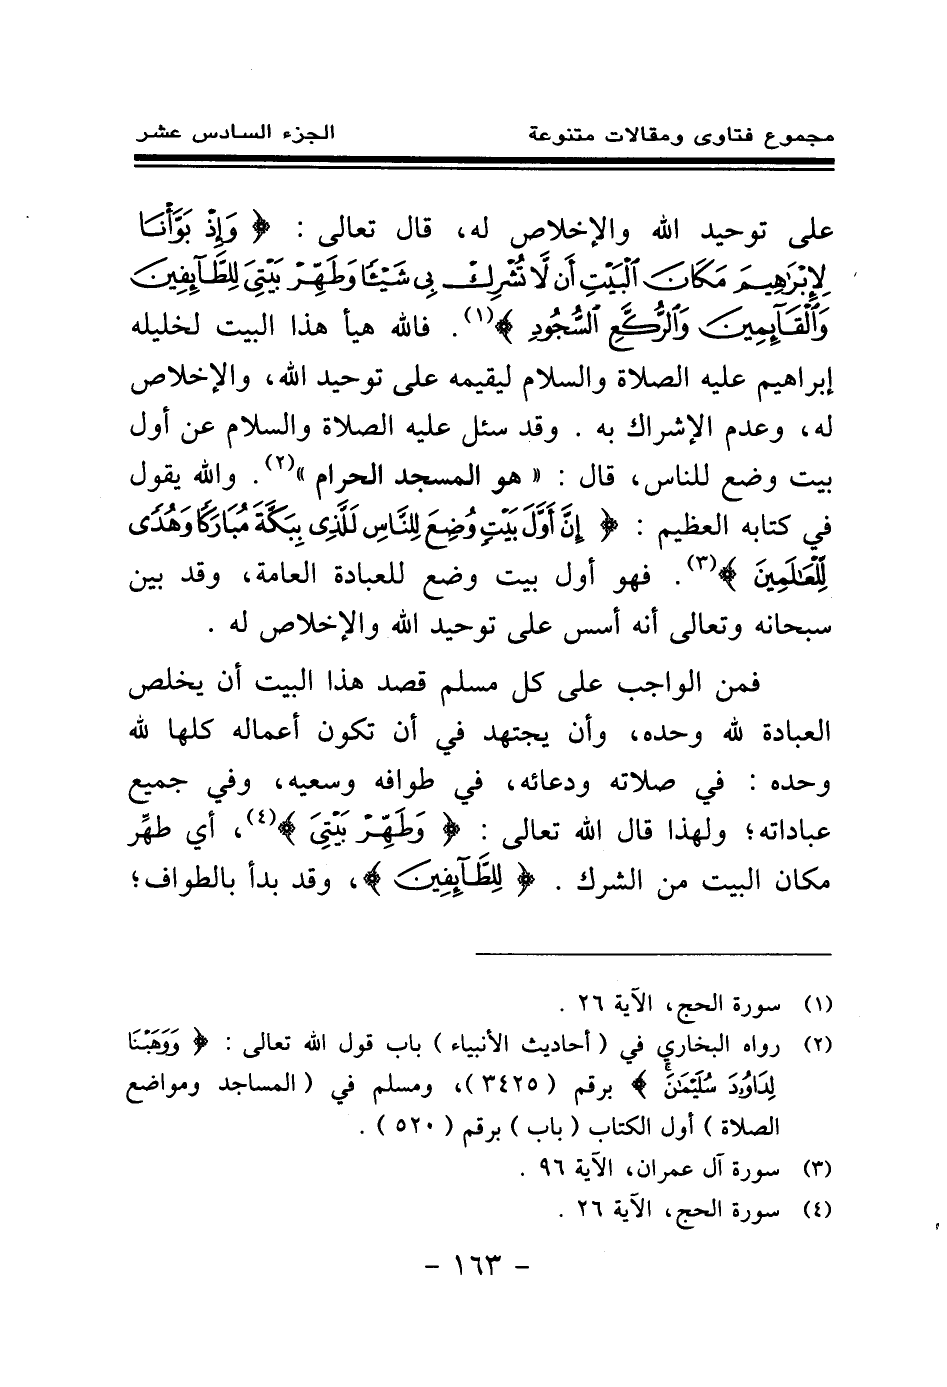 مجموع فتاوى ومقالات متنوعة الجزء السادس عشر
على توحيد الله والإخلاص له، قال تعالى : ﴿ وَإِذْ بَوَّأْنَا
لِإِبْرَٰهِيمَ مَكَانَ ٱلْبَيْتِ أَن لَّا تُشْرِكْ بِى شَيْـًٔا وَطَهِّرْ بَيْتِىَ لِلطَّآئِفِينَ
وَٱلْقَآئِمِينَ وَٱلرُّكَّعِ ٱلسُّجُودِ ﴾(١). فالله هيأ هذا البيت لخليله
إبراهيم عليه الصلاة والسلام ليقيمه على توحيد الله، والإخلاص
له، وعدم الإشراك به . وقد سئل عليه الصلاة والسلام عن أول
بيت وضع للناس، قال : « هو المسجد الحرام »(٢). والله يقول
في كتابه العظيم : ﴿ إِنَّ أَوَّلَ بَيْتٍ وُضِعَ لِلنَّاسِ لَلَّذِى بِبَكَّةَ مُبَارَكًا وَهُدًى
لِّلْعَٰلَمِينَ ﴾(٣). فهو أول بيت وضع للعبادة العامة، وقد بين
سبحانه وتعالى أنه أسس على توحيد الله والإخلاص له .
فمن الواجب على كل مسلم قصد هذا البيت أن يخلص
العبادة لله وحده، وأن يجتهد في أن تكون أعماله كلها لله
وحده : في صلاته ودعائه، في طوافه وسعيه، وفي جميع
عباداته؛ ولهذا قال الله تعالى : ﴿ وَطَهِّرْ بَيْتِىَ ﴾(٤)، أي طهِّر
مكان البيت من الشرك . ﴿ لِلطَّآئِفِينَ ﴾، وقد بدأ بالطواف؛
(١) سورة الحج، الآية ٢٦ .
(٢) رواه البخاري في ( أحاديث الأنبياء ) باب قول الله تعالى : ﴿ وَوَهَبْنَا
لِدَاوُۥدَ سُلَيْمَٰنَ ﴾ برقم ( ٣٤٢٥ )، ومسلم في ( المساجد ومواضع
الصلاة ) أول الكتاب ( باب ) برقم ( ٥٢٠ ) .
(٣) سورة آل عمران، الآية ٩٦ .
(٤) سورة الحج، الآية ٢٦ .
- ١٦٣ -